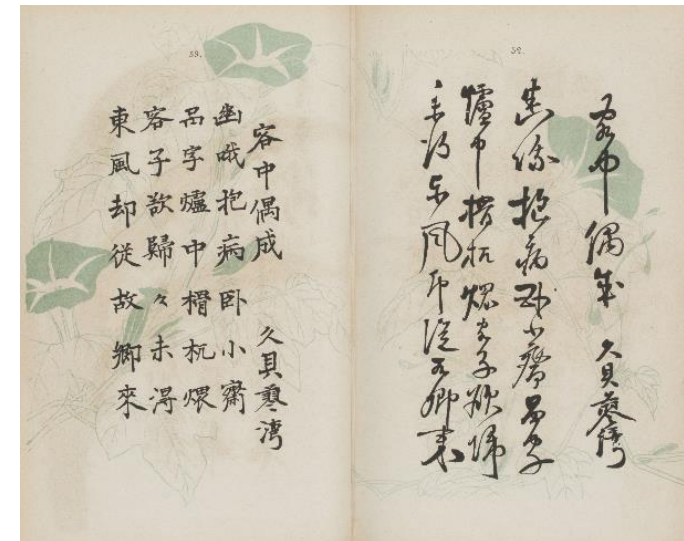 58.
客中偶成 久貝蓼湾
幽哦抱病臥小齋品字
爐中榾杌煨客子欲帰
未得東風却従故郷来
59.
客中偶成 久貝蓼湾
幽哦抱病臥小齋
品字爐中榾杌煨
客子欲歸々未得
東風却從故鄉來